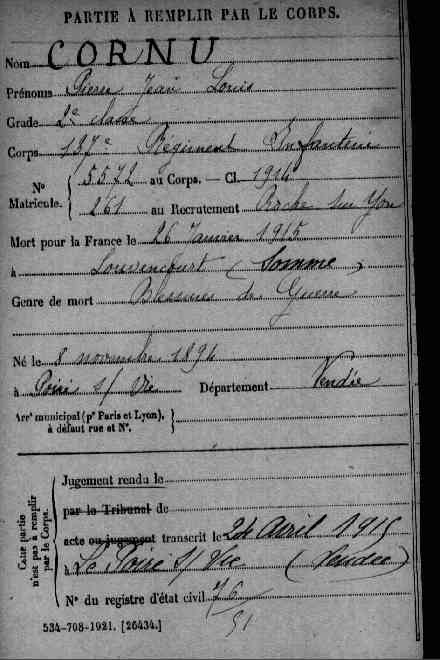 PARTIE À REMPLIR PAR LE CORPS.
Nom CORNU
Prénoms Pierre Jean Louis
Grade 2e classe
Corps 137e Régiment Infanterie
N° Matricule. { 5572 au Corps. — Cl. 1914
261 au Recrutement Roche sur Yon
Mort pour la France le 26 Janvier 1915
à Louvencourt (Somme)
Genre de mort Blessures de Guerre
Né le 8 novembre 1894
à Poiré s/ Vie Département Vendée
Arrt municipal (pr Paris et Lyon), à défaut rue et N°. }
Cette partie n'est pas à remplir par le Corps.
Jugement rendu le
par le Tribunal de
acte ou jugement transcrit le 24 Avril 1915
à Le Poiré s/ Vie (Vendée)
N° du registre d'état civil 76/51
534-708-1921. [26434.]